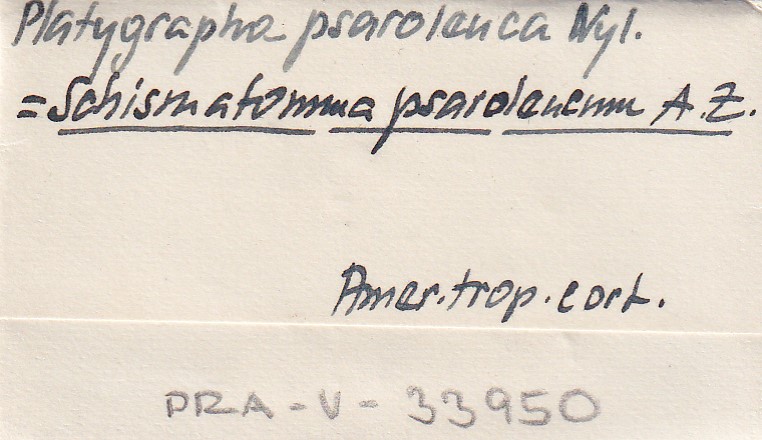 Platygrapha psaroleuca Nyl.
= Schismatomma psaroleucum A.Z.
Amer.trop.cort.
PRA-V-33950